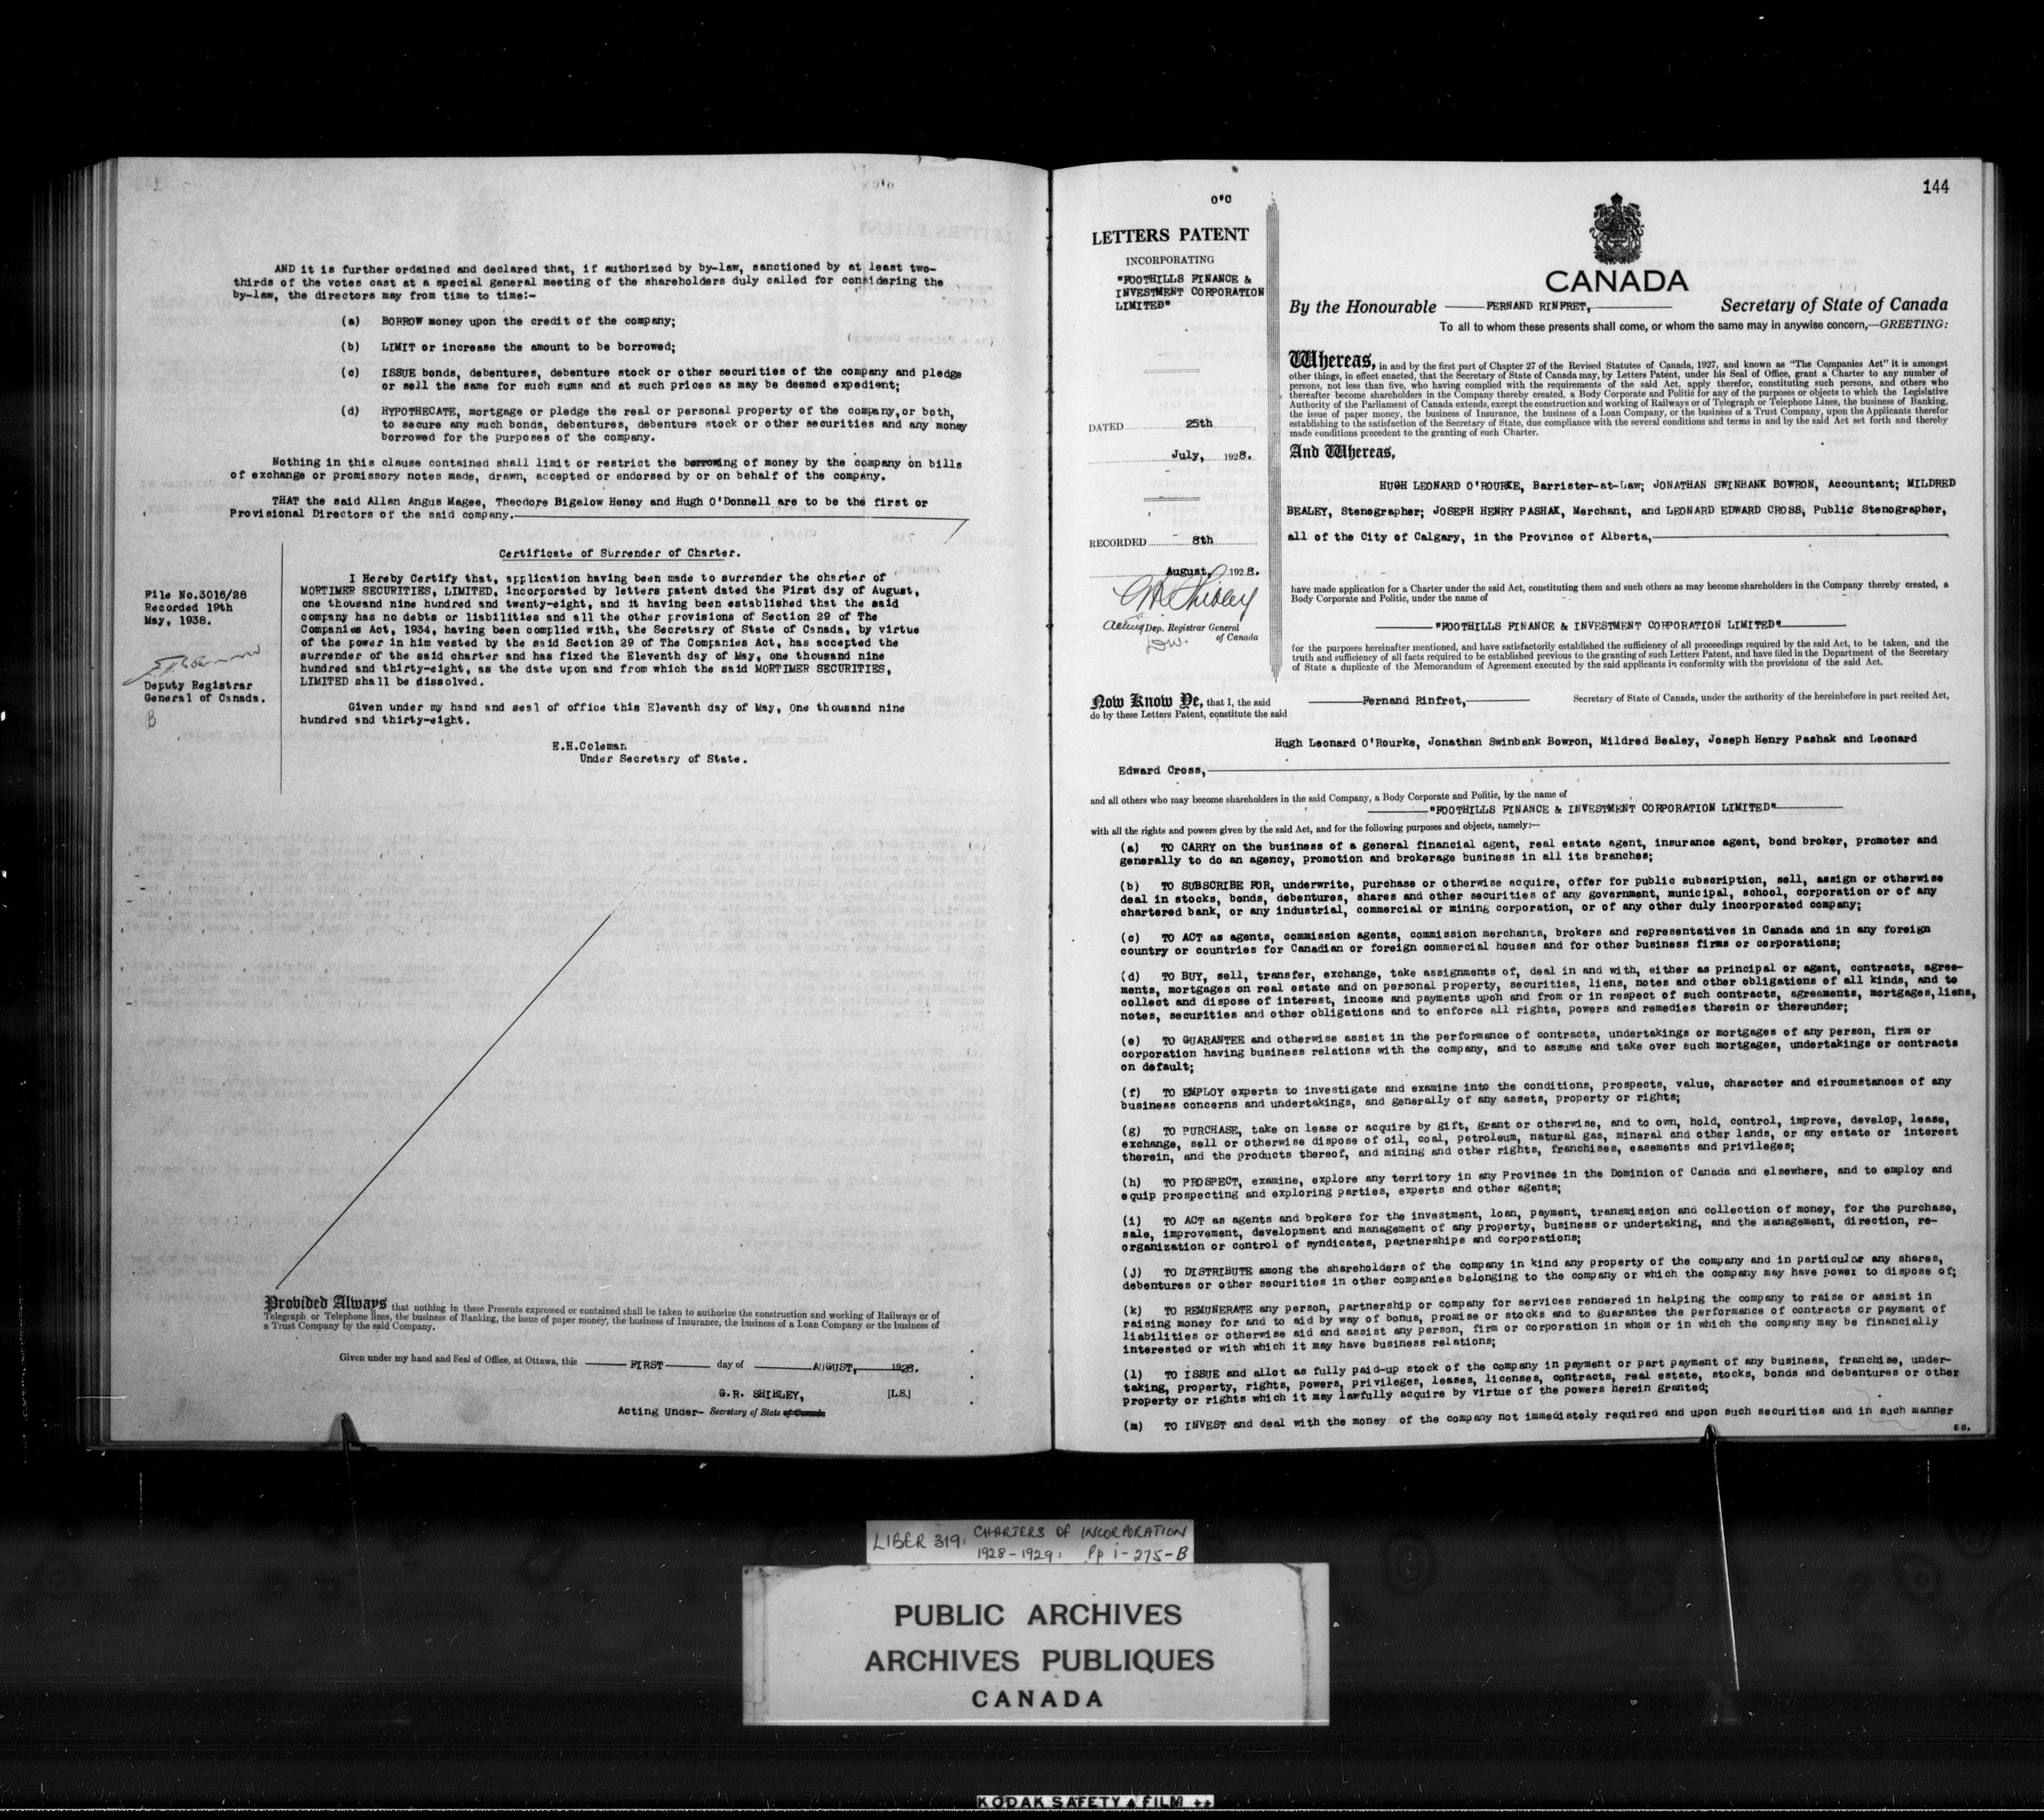 AND it is further ordained and declared that, if authorized by by-law, sanctioned by at least two-
thirds of the votes cast at a special general meeting of the shareholders duly called for considering the
by-law, the directors may from time to time:-
(a) BORROW money upon the credit of the company;
(b) LIMIT or increase the amount to be borrowed;
(c) ISSUE bonds, debentures, debenture stock or other securities of the company and pledge
or sell the same for such sums and at such prices as may be deemed expedient;
(d) HYPOTHECATE, mortgage or pledge the real or personal property of the company, or both,
to secure any such bonds, debentures, debenture stock or other securities and any money
borrowed for the purposes of the company.
Nothing in this clause contained shall limit or restrict the borrowing of money by the company on bills
of exchange or promissory notes made, drawn, accepted or endorsed by or on behalf of the company.
THAT the said Allan Angus Magee, Theodore Bigelow Heney and Hugh O'Donnell are to be the first or
Provisional Directors of the said company.
Certificate of Surrender of Charter.
File No.3016/28
Recorded 19th
May, 1938.
Deputy Registrar
General of Canada.
B
I Hereby Certify that, application having been made to surrender the charter of
MORTIMER SECURITIES, LIMITED, incorporated by letters patent dated the First day of August,
one thousand nine hundred and twenty-eight, and it having been established that the said
company has no debts or liabilities and all the other provisions of Section 29 of The
Companies Act, 1934, having been complied with, the Secretary of State of Canada, by virtue
of the power in him vested by the said Section 29 of The Companies Act, has accepted the
surrender of the said charter and has fixed the Eleventh day of May, one thousand nine
hundred and thirty-eight, as the date upon and from which the said MORTIMER SECURITIES,
LIMITED shall be dissolved.
Given under my hand and seal of office this Eleventh day of May, One thousand nine
hundred and thirty-eight.
E.H.Coleman
Under Secretary of State.
Provided Always that nothing in these Presents expressed or contained shall be taken to authorize the construction and working of Railways or of
Telegraph or Telephone lines, the business of Banking, the issue of paper money, the business of Insurance, the business of a Loan Company or the business of
a Trust Company by the said Company.
Given under my hand and Seal of Office, at Ottawa, this FIRST day of AUGUST, 1928.
G.R. SHIBLEY, [L.S.]
Acting Under- Secretary of State of Canada
144
O'C
LETTERS PATENT
INCORPORATING
"FOOTHILLS FINANCE &
INVESTMENT CORPORATION
LIMITED"
DATED 25th
July, 1928.
RECORDED 8th
August, 1928.
GR Shibley
Acting Dep. Registrar General
of Canada
CANADA
By the Honourable FERNAND RINFRET, Secretary of State of Canada
To all to whom these presents shall come, or whom the same may in anywise concern,—GREETING:
Whereas, in and by the first part of Chapter 27 of the Revised Statutes of Canada, 1927, and known as "The Companies Act" it is amongst
other things, in effect enacted, that the Secretary of State of Canada may, by Letters Patent, under his Seal of Office, grant a Charter to any number of
persons, not less than five, who having complied with the requirements of the said Act, apply therefor, constituting such persons, and others who
thereafter become shareholders in the Company thereby created, a Body Corporate and Politic for any of the purposes or objects to which the Legislative
Authority of the Parliament of Canada extends, except the construction and working of Railways or of Telegraph or Telephone Lines, the business of Banking,
the issue of paper money, the business of Insurance, the business of a Loan Company, or the business of a Trust Company, upon the Applicants therefor
establishing to the satisfaction of the Secretary of State, due compliance with the several conditions and terms in and by the said Act set forth and thereby
made conditions precedent to the granting of such Charter.
And Whereas,
HUGH LEONARD O'ROURKE, Barrister-at-Law; JONATHAN SWINBANK BOWRON, Accountant; MILDRED
BEALEY, Stenographer; JOSEPH HENRY PASHAK, Merchant, and LEONARD EDWARD CROSS, Public Stenographer,
all of the City of Calgary, in the Province of Alberta,
have made application for a Charter under the said Act, constituting them and such others as may become shareholders in the Company thereby created, a
Body Corporate and Politic, under the name of
"FOOTHILLS FINANCE & INVESTMENT CORPORATION LIMITED"
for the purposes hereinafter mentioned, and have satisfactorily established the sufficiency of all proceedings required by the said Act, to be taken, and the
truth and sufficiency of all facts required to be established previous to the granting of such Letters Patent, and have filed in the Department of the Secretary
of State a duplicate of the Memorandum of Agreement executed by the said applicants in conformity with the provisions of the said Act.
Now Know Ye, that I, the said Fernand Rinfret, Secretary of State of Canada, under the authority of the hereinbefore in part recited Act,
do by these Letters Patent, constitute the said
Hugh Leonard O'Rourke, Jonathan Swinbank Bowron, Mildred Bealey, Joseph Henry Pashak and Leonard
Edward Cross,
and all others who may become shareholders in the said Company, a Body Corporate and Politic, by the name of
"FOOTHILLS FINANCE & INVESTMENT CORPORATION LIMITED"
with all the rights and powers given by the said Act, and for the following purposes and objects, namely:—
(a) TO CARRY on the business of a general financial agent, real estate agent, insurance agent, bond broker, promoter and
generally to do an agency, promotion and brokerage business in all its branches;
(b) TO SUBSCRIBE FOR, underwrite, purchase or otherwise acquire, offer for public subscription, sell, assign or otherwise
deal in stocks, bonds, debentures, shares and other securities of any government, municipal, school, corporation or of any
chartered bank, or any industrial, commercial or mining corporation, or of any other duly incorporated company;
(c) TO ACT as agents, commission agents, commission merchants, brokers and representatives in Canada and in any foreign
country or countries for Canadian or foreign commercial houses and for other business firms or corporations;
(d) TO BUY, sell, transfer, exchange, take assignments of, deal in and with, either as principal or agent, contracts, agree-
ments, mortgages on real estate and on personal property, securities, liens, notes and other obligations of all kinds, and to
collect and dispose of interest, income and payments upon and from or in respect of such contracts, agreements, mortgages, liens,
notes, securities and other obligations and to enforce all rights, powers and remedies therein or thereunder;
(e) TO GUARANTEE and otherwise assist in the performance of contracts, undertakings or mortgages of any person, firm or
corporation having business relations with the company, and to assume and take over such mortgages, undertakings or contracts
on default;
(f) TO EMPLOY experts to investigate and examine into the conditions, prospects, value, character and circumstances of any
business concerns and undertakings, and generally of any assets, property or rights;
(g) TO PURCHASE, take on lease or acquire by gift, grant or otherwise, and to own, hold, control, improve, develop, lease,
exchange, sell or otherwise dispose of oil, coal, petroleum, natural gas, mineral and other lands, or any estate or interest
therein, and the products thereof, and mining and other rights, franchises, easements and privileges;
(h) TO PROSPECT, examine, explore any territory in any Province in the Dominion of Canada and elsewhere, and to employ and
equip prospecting and exploring parties, experts and other agents;
(i) TO ACT as agents and brokers for the investment, loan, payment, transmission and collection of money, for the purchase,
sale, improvement, development and management of any property, business or undertaking, and the management, direction, re-
organization or control of syndicates, partnerships and corporations;
(j) TO DISTRIBUTE among the shareholders of the company in kind any property of the company and in particular any shares,
debentures or other securities in other companies belonging to the company or which the company may have power to dispose of;
(k) TO REMUNERATE any person, partnership or company for services rendered in helping the company to raise or assist in
raising money for and to aid by way of bonus, promise or stocks and to guarantee the performance of contracts or payment of
liabilities or otherwise aid and assist any person, firm or corporation in whom or in which the company may be financially
interested or with which it may have business relations;
(l) TO ISSUE and allot as fully paid-up stock of the company in payment or part payment of any business, franchise, under-
taking, property, rights, powers, privileges, leases, licenses, contracts, real estate, stocks, bonds and debentures or other
property or rights which it may lawfully acquire by virtue of the powers herein granted;
(m) TO INVEST and deal with the money of the company not immediately required and upon such securities and in such manner
LIBER 319: CHARTERS OF INCORPORATION
1928-1929: Pp i-275-B
PUBLIC ARCHIVES
ARCHIVES PUBLIQUES
CANADA
KODAK SAFETY FILM